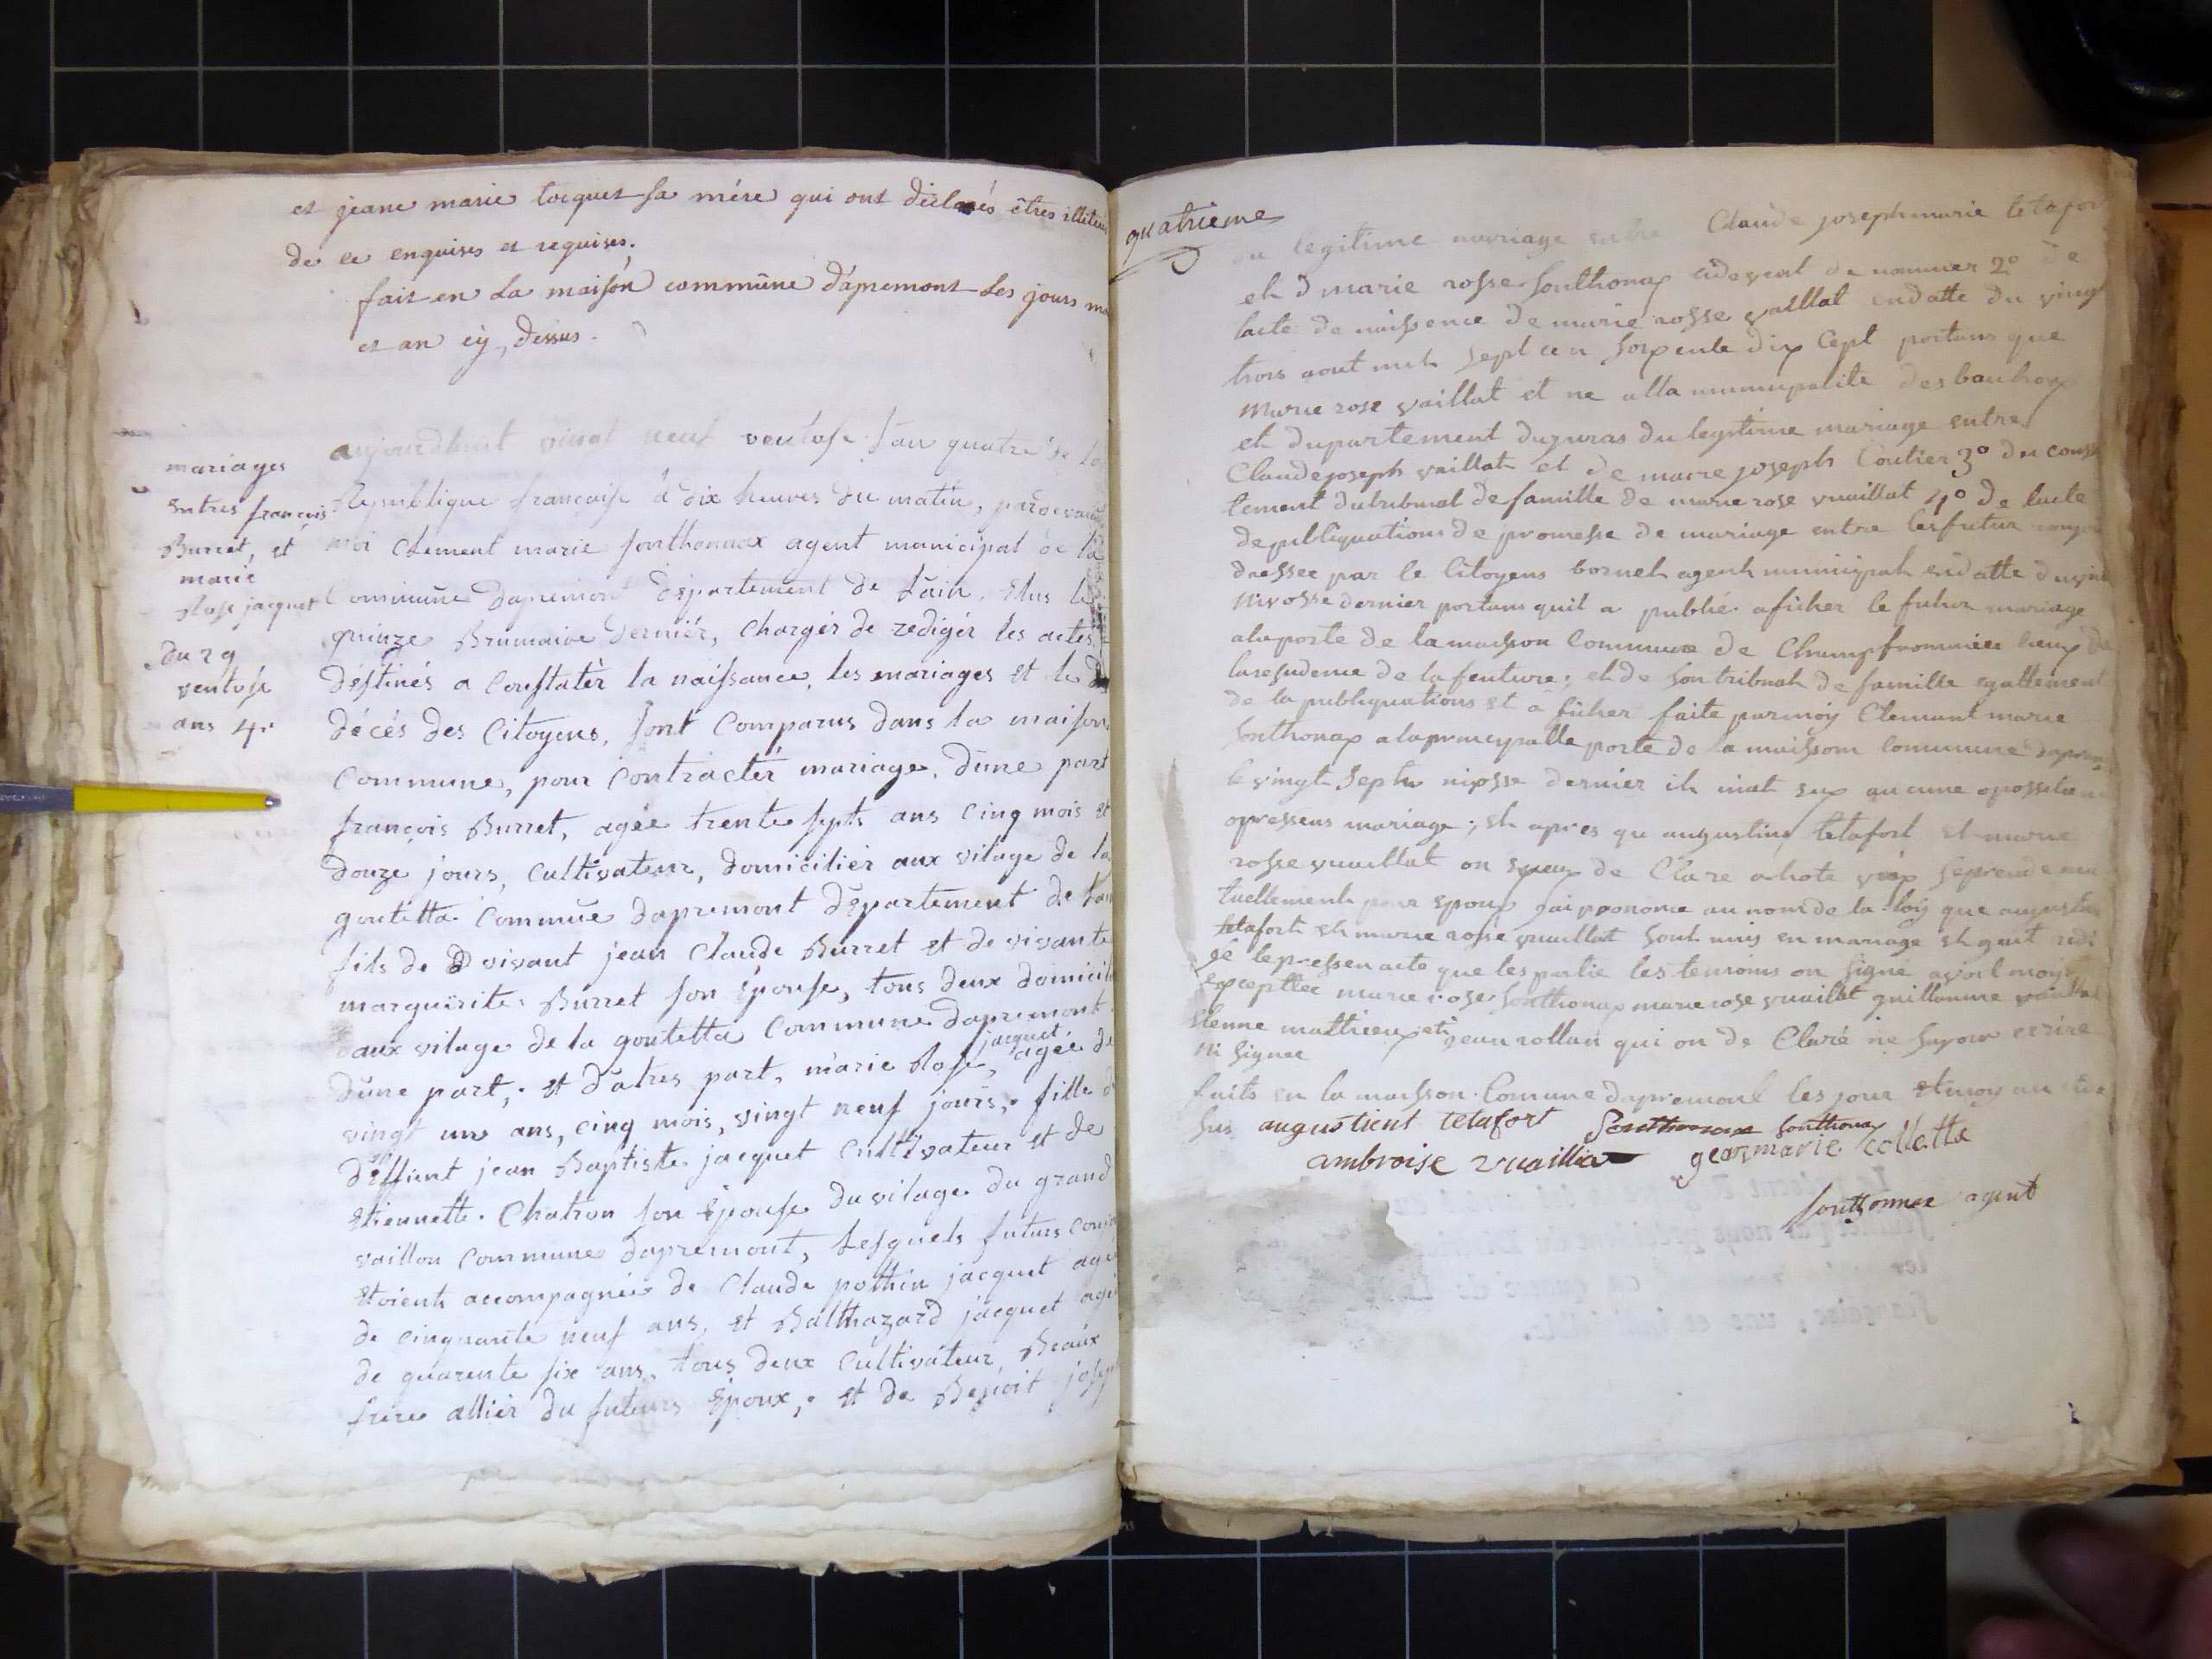 et jeane marie tocquet sa mére qui ont déclarés êtres
de ce enquises et requises.
fait en la maisón commûne d'apremont les jours
et an cÿ, dessus.
mariages
Entres françois
Burret, et
marie
Rose jacquet
du 29
ventose
ans 4.
aujourdhuit vingt neuf ventose l'an quatre de la
Republique française à dix heures du matin, pardevant
moi Clement marie sonthonnax agent municipal de la
Commune dapremont département de Lain, Elus le
quinze Brumaire dernier, Chargér de redigér les actes
déstinés a Constatér la naissance, les mariages et le
décés des Citoyens, sont Comparus dans la maison
Commune, pour Contractér mariage, dune part
françois Burret, agée trente septs ans Cinq mois et
douze jours, Cultivateur, domiciliér aux vilage de la
goutetta Commûe dapremont département de
fils de vivant jean Claude Burret et de vivante
marguerite Burret son Epouse, tous deux
aux vilage de la goutetta Commune dapremont
dune part; et datres part, marie Rose, jacquet agée de
vingt uns ans, cinq mois, vingt neuf jours, fille
deffunt jean Baptiste jacquet Cultivateur et de
Etiennette Chatron son Epouse du vilage du grand
vaillon Commune dapremont, Lesquels futurs
Etoient accompagnés de Claude pothin jacquet
de cinquante neuf ans, et Balthazard jacquet
de quarente six ans, tous deux Cultivateur, Beaux
frere alliér du futurs Epoux, et de Benoit
quatrieme
du legitime mariage entre Claude joseph marie
et d marie rosse sonthonax de nommer 2º de
lacte de naissence de marie rosse vaillat endatte du vingt
trois aout mil sept cen soixente dix sept portans que
Marie rose vaillat et ne alla municipalite des bouchoux
et dupartement dujuras du legitime mariage entre
Claude joseph vaillat et de marie joseph Coutier 3º du
tement dutribunal de famille de marie rose vuaillat 4º de lacte
depubliquations de promesse de mariage entre les futur
dressee par le Citoyens bornet agent municipal endatte
Nivosse dernier portans quil a publié aficher le futur mariage
alaporte de la maisson Commune de Champfrommier
laresidence de lafeuture; et de son tribunal de famille egallement
de la publiquations et a ficher faite parmoy Clemant marie
Sonthonax alaprincypalle porte de la maissom Commune
le vingt sept dernier il aucune opossition
opressens mariage; et apres que augustins tetafort et marie
rosse vuaillat on de Clare ahote voix seprende
tuellement pour epoux jai prononce au nom de la loiy que
tetafort et marie rosse vuaillat sont unis en mariage et
gé lepressen acte que les partie les temoins on signé avoit moy
Exceptter marie rose sonthonax marie rose vuaillat guillaume
Etenne mathieu et jean rollan qui on de Claré ne savoir ecrire
Ni Signee
faits en la maisson Comune dapremont les jour et moy an
sus augustient tetafort Sonthonax Sonthonax
ambroise vuaillia jeanmarie colletta
Sonthonnax agent